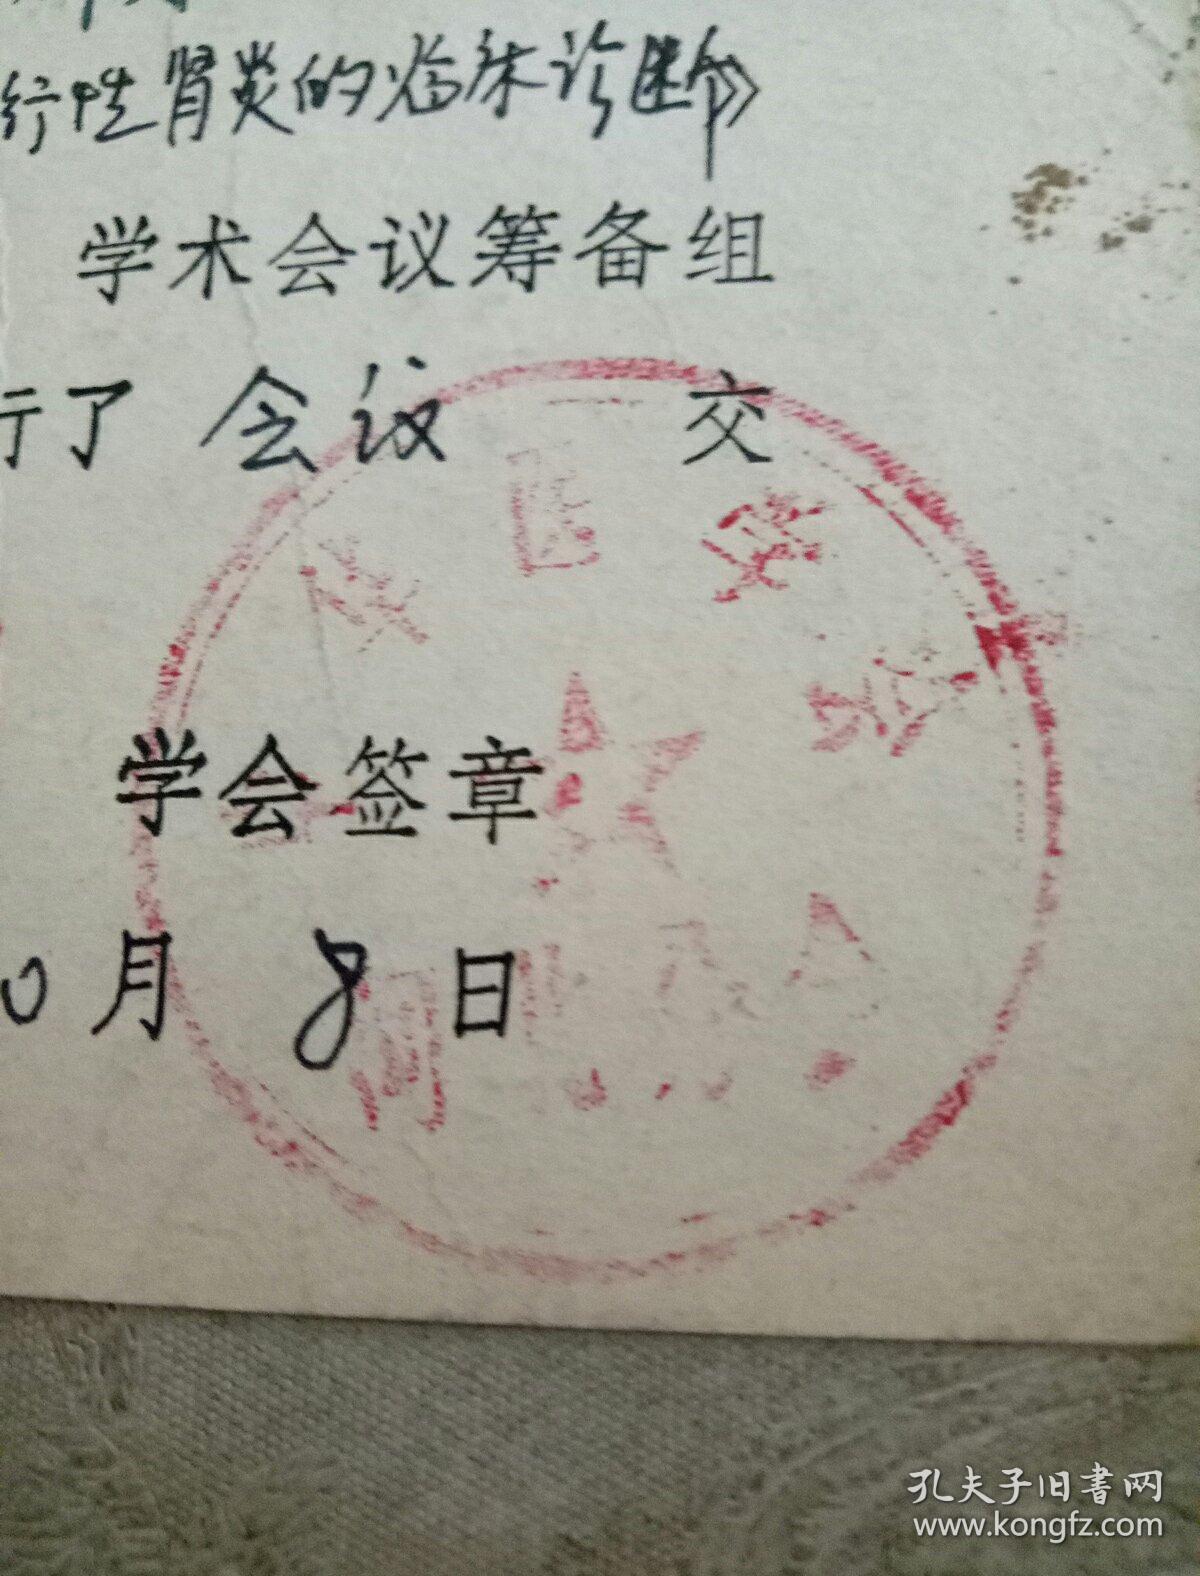 行性肾炎的临床诊断》
学术会议筹备组
行了 会议 交
医学会
学会签章
0月 8日
孔夫子旧书网
www.kongfz.com